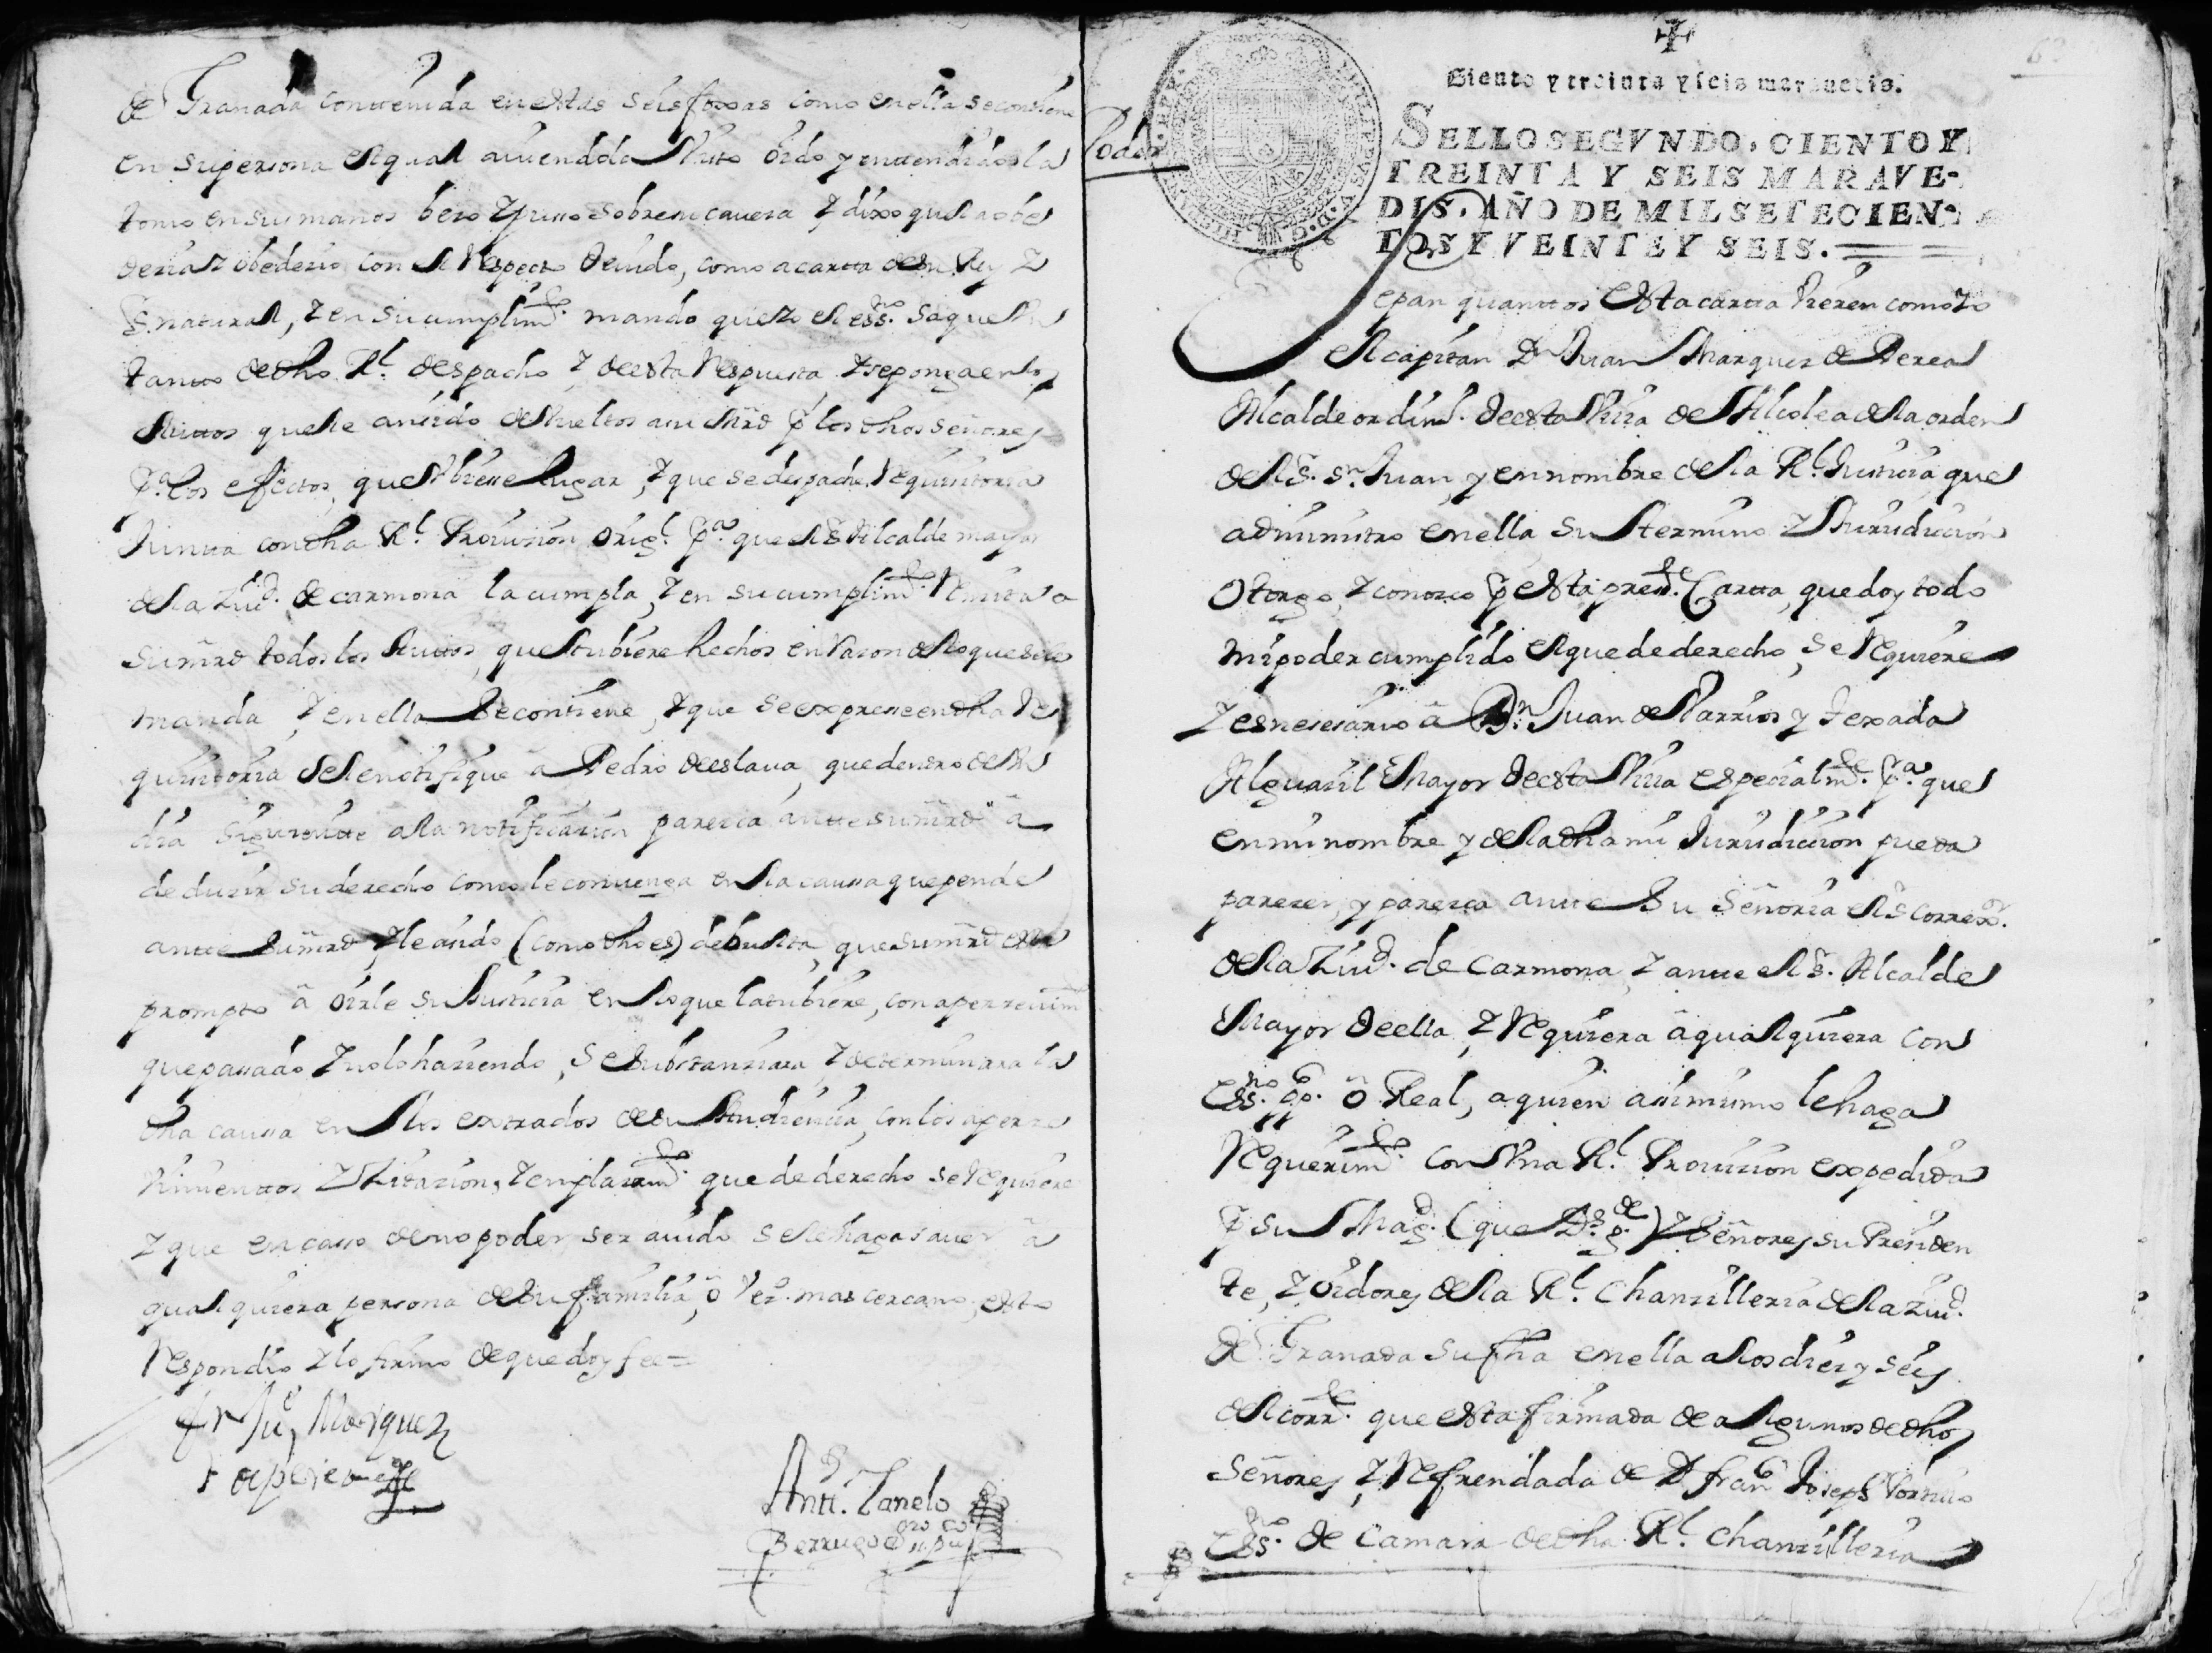 de Granada contenida en estas seis foxas como en ella se contiene
en su persona el qual aviendola visto oido y entendidola
tomo en sus manos beso y puso sobre su cavesa y dixo que la obe
desia y obedesio con el Respecto devido, como a carta de su Rey y
S. natural, y en su cumplimto. mando que yo el essno. saque un
tanto de dho Rl. despacho y de esta Respuesta y se ponga en los
Auttos que le an sido debueltos a su mrd p los dhos señores
pa. los efectos que vbiere lugar, y que se despache Requisitoria
Junta con dha Rl. Provision orixl. pa. que el S Alcalde mayor
de la Ziud. de carmona la cumpla, y en su cumplimto. Remita a
su mrd todos los Auttos que tubiere hechos en rason de lo que se le
manda, y en ella se contiene, y que se exprese en dha Re
quisitoria se le notifique â Pedro de eslava, que dentro de un
dia siguiente a la notificazion paresca ante su mrd â
dedusir su derecho como le convenga en la causa que pende
ante su mrd y le a sido (como dho es) debuelta, que su mrd esta
prompto â oirle su Justicia en lo que la tubiere, con apersevim
que pasado y no lo hasiendo, se substansiara, y determinara la
dha causa en los extrados de su Audiencia, con los aperse
vimientos y Zitasion, y emplasamto. que de derecho se Requiere
y que en caso de no poder ser avido se le haga saver â
qualquiera persona de su familia, ô Vezo. mas cercano, esto
Respondio y lo firmo de que doy fee=
Ju Marquez
de perea
Antto. Zanelo
Berrugo Ssno pu
Poder
Siento y treinta y seis maravedis.
SELLO SEGVNDO, CIENTO Y
TREINTA Y SEIS MARAVE-
DIS, AÑO DE MIL SETECIEN-
TOS Y VEINTE Y SEIS.
Sepan quanttos esta cartta vieren como Yo
el capitan Dn Juan Marques de Perea
Alcalde ordino. de esta Villa de Alcolea de la orden
del S. Sn. Juan, y en nombre de la Rl. Justicia que
administro en ella su termino y Jurisdicion
Otorgo, y conosco p esta preste. Cartta, que doy todo
mi poder cumplido el que de derecho se Requiere
y es nesesario â Dn. Juan de Barrios y Texada
Alguasil Mayor de esta Villa especialmte. pa. que
en mi nombre y de la dha mi Jurisdicion pueda
pareser, y paresca ante Su Señoria el S correxor.
de la Ziud. de Carmona, y ante el S. Alcalde
Mayor de ella, y Requiera â qualquiera con
Essno. ppco. ô Real, a quien asimismo le haga
Requerimto. con una Rl. Provision expedida
p su Magd. (que Ds. gde.) y Señores su Presiden
te, y oidores de la Rl. Chansilleria de la Ziud.
de Granada su fha en ella a los dies y seis
del corrte. que esta firmada de algunos de dhos
Señores, y Refrendada de D franco Joseph Portillo
Essno. de Camara de dha Rl. Chansilleria